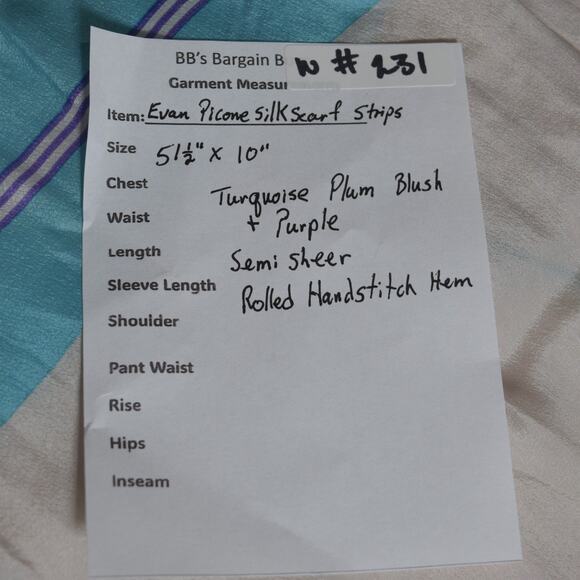 BB's Bargain B
W # 231
Garment Measu
Item: Evan Picone Silk Scarf Strips
Size 51 1/2" x 10"
Chest
Turquoise Plum Blush
Waist + Purple
Length Semi sheer
Sleeve Length Rolled Handstitch Hem
Shoulder
Pant Waist
Rise
Hips
Inseam